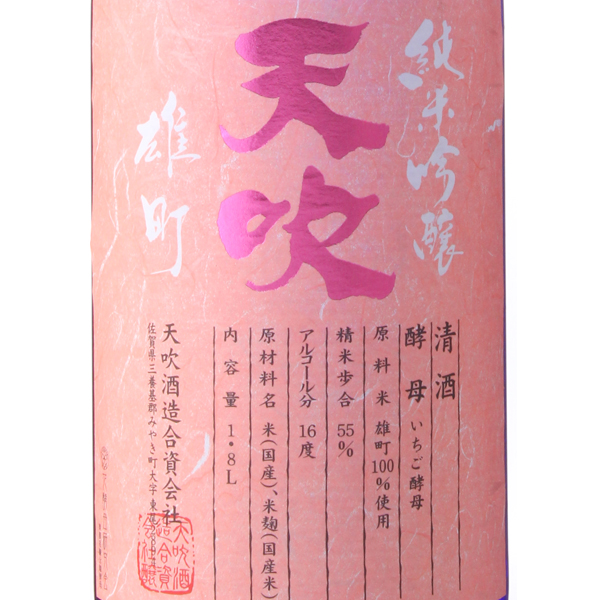 純米吟醸
天吹
雄町
清酒
酵母 いちご酵母
原料米 雄町100%使用
精米歩合 55%
アルコール分 16度
原材料名 米(国産)、米麹(国産米)
内容量 1.8L
天吹酒造合資会社
佐賀県三養基郡みやき町大字東
天吹酒
造合資